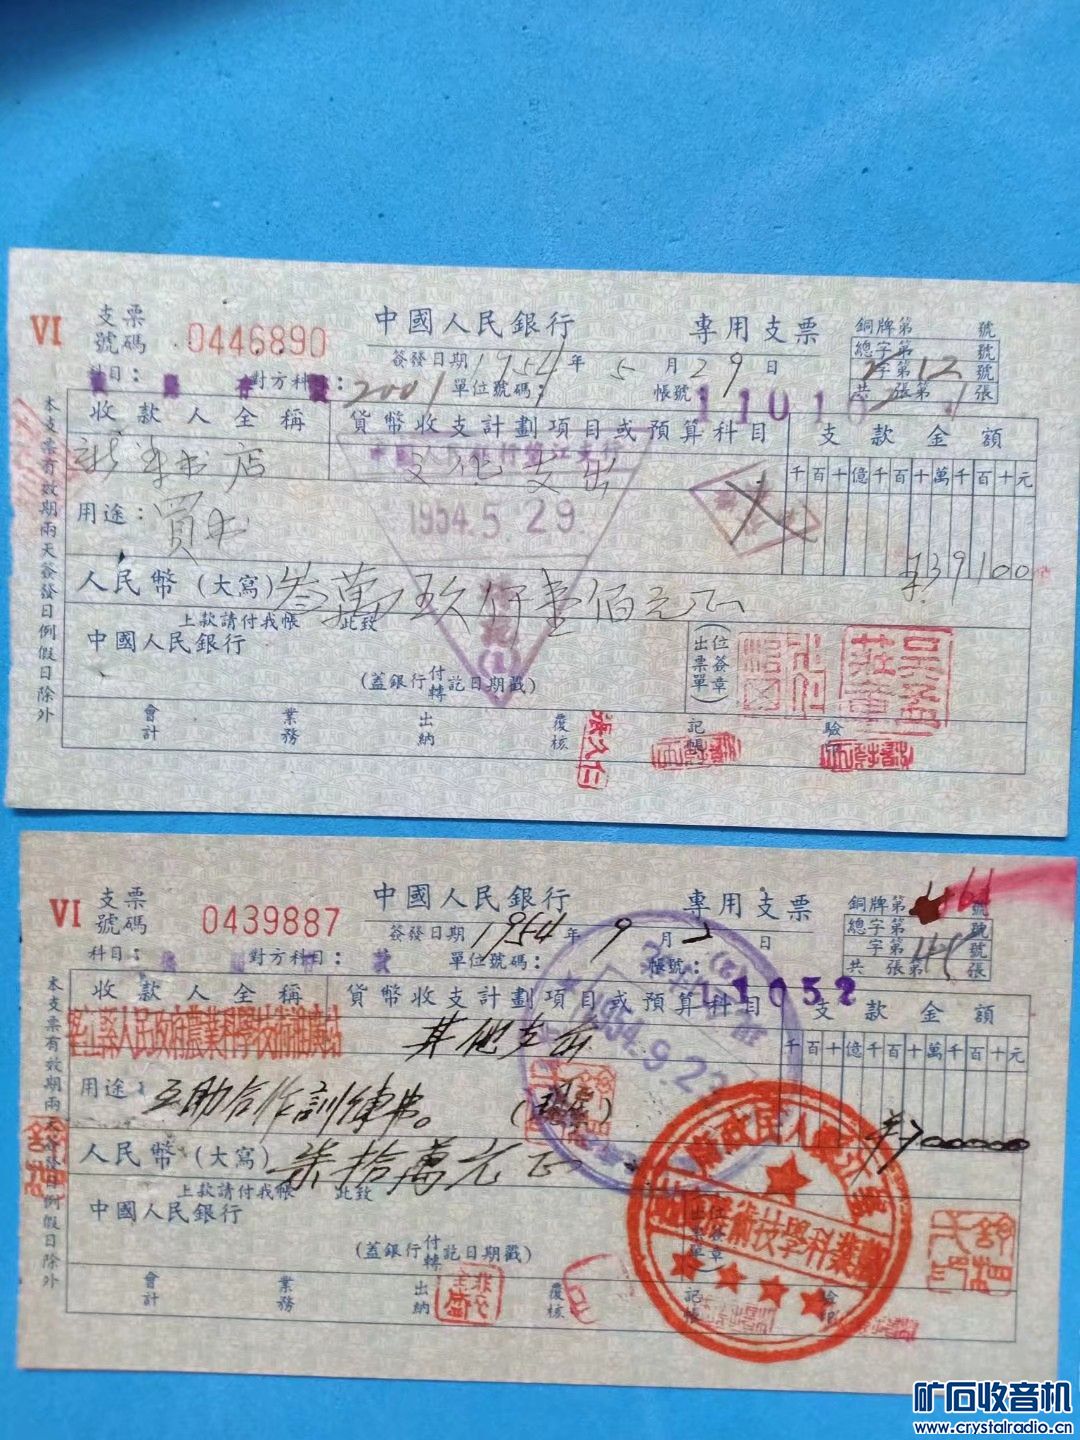 VI 支票號碼 0446890 中國人民銀行 專用支票 銅牌第 號
簽發日期 1954年 5月29日 總字第 號
字第 12 號
科目： 對方科目： 2001 單位號碼： 帳號： 共 張第 張
收款人全稱 貨幣收支計劃項目或預算科目 支款金額
新华书店 文化支出 千百十億千百十萬千百十元
中國人民銀行綦江支行
1954.5.29.
用途：買书
39100
人民幣（大寫）叁萬玖仟壹佰元正
上款請付我帳 此致
中國人民銀行
（蓋銀行付轉訖日期戳）
出票單位（簽章）
會計 業務 出納 覆核 記帳 驗印
張久仁
本支票有效期兩天簽發日例假日除外
VI 支票號碼 0439887 中國人民銀行 專用支票 銅牌第 號
簽發日期 1954年 9月 日 總字第 號
字第 號
科目： 對方科目： 單位號碼： 帳號： 11052 共 張第 張
收款人全稱 貨幣收支計劃項目或預算科目 支款金額
綦江縣人民政府農業科學技術推廣站 其他支出 千百十億千百十萬千百十元
1954.9.23
用途：互助合作訓練費。
700000
人民幣（大寫）柒拾萬元正
上款請付我帳 此致
中國人民銀行
（蓋銀行付轉訖日期戳）
出票單位（簽章）
會計 業務 出納 覆核 記帳 驗印
本支票有效期兩天簽發日例假日除外
矿石收音机
www.crystalradio.cn